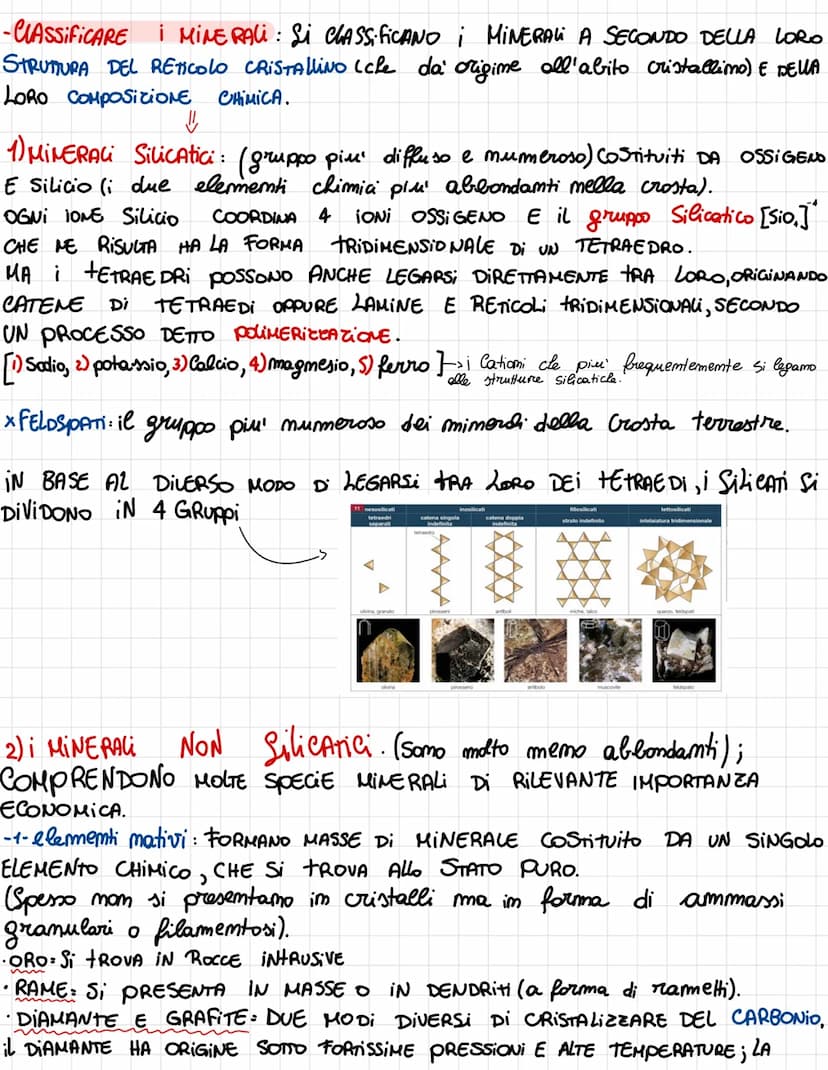 -CLASSIFICARE i MINERALI: Si CLASSIFICANO i MINERALI A SECONDO DELLA LORO
STRUTTURA DEL RETICOLO CRISTALLINO (che da' origine all'abito cristallino) E DELLA
LORO COMPOSIZIONE CHIMICA.
1) MINERALI SILICATICI: (gruppo piu' diffuso e numeroso) COSTITUITI DA OSSIGENO
E Silicio (i due elementi chimici piu' abbondanti nella crosta).
OGNI IONE Silicio COORDINA 4 IONI OSSIGENO E il gruppo Silicatico [SiO4]-4
CHE NE RISULTA HA LA FORMA TRIDIMENSIONALE Di UN TETRAEDRO.
MA i TETRAEDRI POSSONO ANCHE LEGARSI DIRETTAMENTE TRA LORO, ORIGINANDO
CATENE Di TETRAEDI OPPURE LAMINE E RETICOLI TRIDIMENSIONALI, SECONDO
UN PROCESSO DETTO POLIMERIZZAZIONE.
[1) Sodio, 2) potassio, 3) Calcio, 4) magnesio, 5) ferro] → i Cationi che piu' frequentemente si legano
alle strutture silicatiche.
x FELDSPATI: il gruppo piu' numeroso dei minerali della Crosta terrestre.
IN BASE AL DIVERSO MODO Di LEGARSI TRA LORO DEI TETRAEDI, i SiliCATI Si
DIVIDONO IN 4 GRUPPI
11 nesosilicati inosilicati fillosilicati tettosilicati
tetraedri separati catena singola indefinita catena doppia indefinita strato indefinito intelaiatura tridimensionale
tetraedro
olivina, granato pirosseni anfiboli miche, talco quarzo, feldspati
olivina pirosseno anfibolo muscovite feldspato
2) i MINERALI NON SiliCATICI. (Sono molto meno abbondanti);
COMPRENDONO MOLTE SPECIE MINERALI Di RILEVANTE IMPORTANZA
ECONOMICA.
-1- elementi nativi: FORMANO MASSE Di MINERALE COSTITUITO DA UN SINGOLO
ELEMENTO CHIMICO, CHE Si TROVA ALLO STATO PURO.
(Spesso non si presentano in cristalli ma in forma di ammassi
granulari o filamentosi).
·ORO: Si TROVA IN ROCCE INTRUSIVE
·RAME: Si PRESENTA IN MASSE O IN DENDRITI (a forma di rametti).
·DIAMANTE E GRAFITE: DUE MODI DIVERSI Di CRISTALIZZARE DEL CARBONIO,
il DIAMANTE HA ORIGINE SOTTO FORTISSIME PRESSIONI E ALTE TEMPERATURE; LA